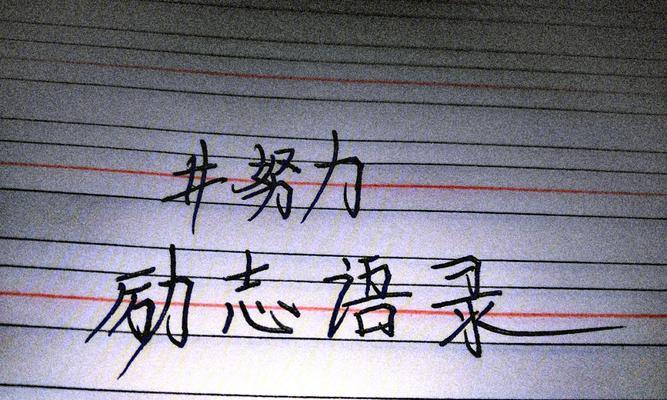 #努力
励志语录